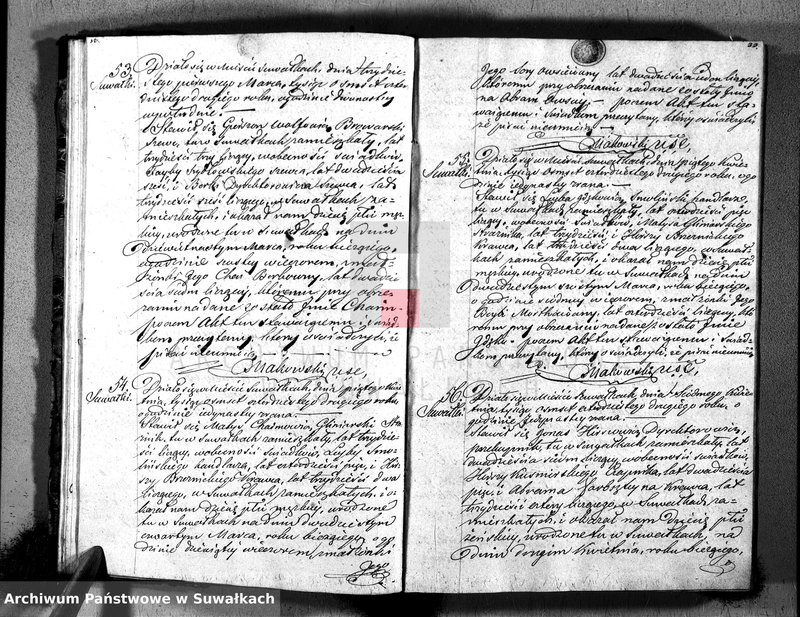 53.
Suwałki.
Działo się w Mieście Suwałkach, dnia trzydzie
stego pierwszego Marca, tysiąc ośmset czter
dziestego drugiego roku, o godzinie dwunastéy
w południe.
Stawił się Browarski
Szewc, tu w Suwałkach zamieszkały, lat
trzydzieści trzy liczący, w obecności świadków,
Szewca, lat dwadzieścia
sześć, i Borki Krawca, lat
trzydzieści sześć liczącego, w Suwałkach za-
mieszkałych, i okazał nam dziecię płci mę-
zkiéy, urodzone tu w Suwałkach na dniu
dziewiętnastym Marca, roku bieżącego
o godzinie szóstéy wieczorem, z mał-
żonki Jego Chai lat dwadzie-
ścia siedm liczącéy, któremu przy obrze-
zaniu nadane zostało Jmie Chaim.
poczem Akt ten stawaiącemu i świad-
kom przeczytany, którzy oświadczyli, że
pisać nieumieią.
Makowski
54.
Suwałki.
Działo się w Mieście Suwałkach, dnia piątego Kwie-
tnia, tysiąc ośmset czterdziestego drugiego roku,
o godzinie jedynastéy zrana.
Stawił się Matys
tu w Suwałkach zamieszkały, lat trzydzie-
ści liczący, w obecności świadków, Leyby Smo-
lińskiego handlarza, lat czterdzieści pięć, i Hir-
szy Brzezińskiego Krawca, lat trzydzieści dwa
liczącego, w Suwałkach zamieszkałych, i o-
kazał nam dziecię płci męzkiéy, urodzone
tu w Suwałkach na dniu dwudziestym
czwartym Marca, roku bieżącego, o go-
dzinie dziesiątéy wieczorem, z małżonki
Jego
Jego Sory lat dwadzieścia jeden liczącéy,
któremu przy obrzezaniu nadane zostały Jmio
na Abram Owsey, — poczem Akt ten sta-
waiącemu i świadkom przeczytany, którzy oświadczyli
że pisać nieumieią.
Makowski
55.
Suwałki.
Działo się w Mieście Suwałkach, dnia piątego Kwie-
tnia, tysiąc ośmset czterdziestego drugiego roku, o go-
dzinie jedynastéy zrana.
Stawił się Leyba Smoliński handlarz,
tu w Suwałkach zamieszkały, lat czterdzieści pięć
liczący, w obecności świadków, Matysa
lat trzydzieści, i Hirszy Brzezińskiego
Krawca, lat trzydzieści dwa liczącego, w Suwał-
kach zamieszkałych, i okazał nam dziecię płci
męzkiéy, urodzone tu w Suwałkach na dniu
dwudziestym szóstym Marca, roku bieżącego,
o godzinie siódméy wieczorem, z małżonki Jego
lat czterdzieści liczącéy, któ-
remu przy obrzezaniu nadane zostało Jmie
poczem Akt ten stawaiącemu i świad-
kom przeczytany, którzy oświadczyli, że pisać nieumieią
Makowski
56.
Suwałki.
Działo się w Mieście Suwałkach, dnia siódmego Kwie-
tnia, tysiąc ośmset czterdziestego drugiego roku, o
godzinie jedynastéy zrana.
Stawił się Jonas
tu w Suwałkach zamieszkały, lat
dwadzieścia siedm liczący, w obecności świadków,
Hirszy lat dwadzieścia
pięć, i Abrama Krawca, lat
trzydzieści cztery liczącego, w Suwałkach za-
mieszkałych, i okazał nam dziecię płci
żeńskiéy, urodzone tu w Suwałkach, na
dniu drugim Kwietnia, roku bieżącego,
Archiwum Państwowe w Suwałkach